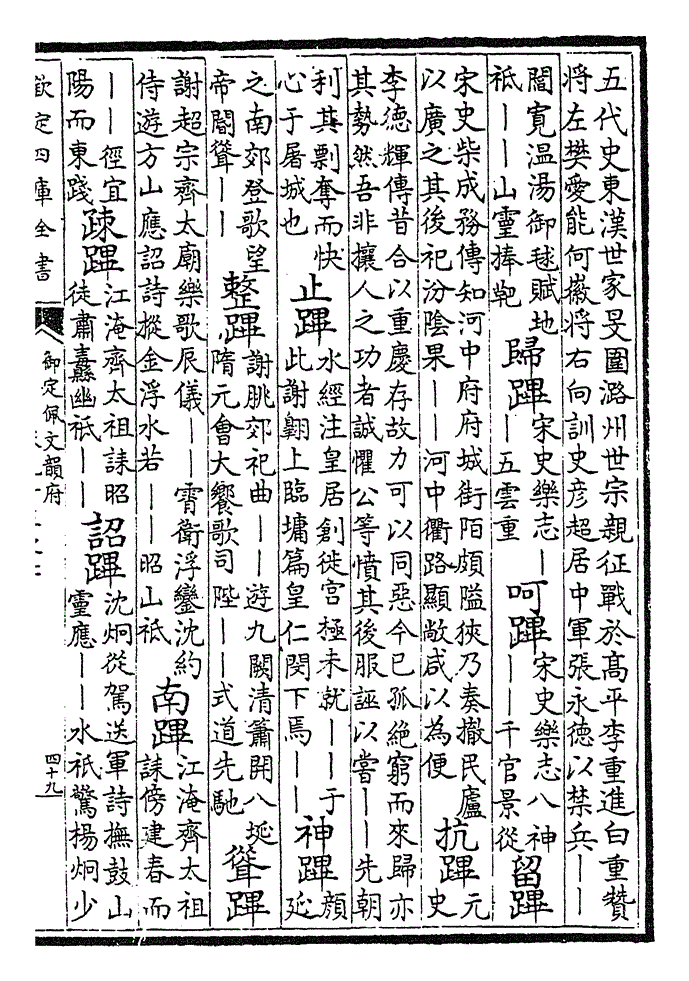 五代史東漢世家旻圍潞州世宗親征戰於髙平李重進白重贊
將左樊愛能何徽將右向訓史彦超居中軍張永德以禁兵——
閻寛温湯御毬賦地
祗——山靈捧靶
歸蹕
宋史樂志—
—五雲重
呵蹕
宋史樂志八神
——千官景從
留蹕
宋史柴成務傳知河中府府城街陌頗隘狹乃奏撤民廬
以廣之其後祀汾陰果——河中衢路顯敞咸以為便
抗蹕
元
史
李德輝傳昔合以重慶存故力可以同惡今已孤絶窮而來歸亦
其勢然吾非攘人之功者誠懼公等憤其後服誣以嘗——先朝
利其剽奪而快
心于屠城也
止蹕
水經注皇居創徙宫極未就——于
此謝翺上臨墉篇皇仁閔下焉——
神蹕
顔
延
之南郊登歌望
帝閽聳——
整蹕
謝朓郊祀曲——遊九闕清簫開八埏
隋元會大饗歌司陛——式道先馳
聳蹕
謝超宗齊太廟樂歌辰儀——霄衛浮鑾沈約
侍遊方山應詔詩摐金浮水若——昭山祗
南蹕
江淹齊太祖
誄傍建春而
——徑宜
陽而東踐
疎蹕
江淹齊太祖誄昭
徒肅纛幽祗——
詔蹕
沈炯從駕送軍詩撫鼓山
靈應——水祗驚楊炯少
欽定四庫全書
御定佩文韻府
四十九